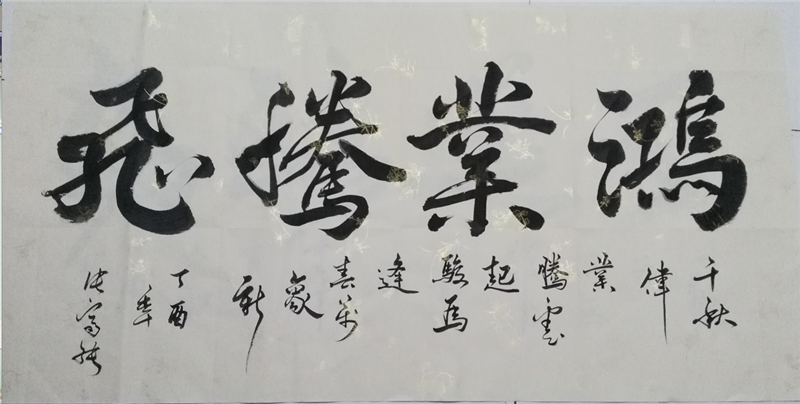 鴻業騰飛
千秋
偉
業
騰雲
起
駿馬
逢
春萬
象
新
丁酉
年
张